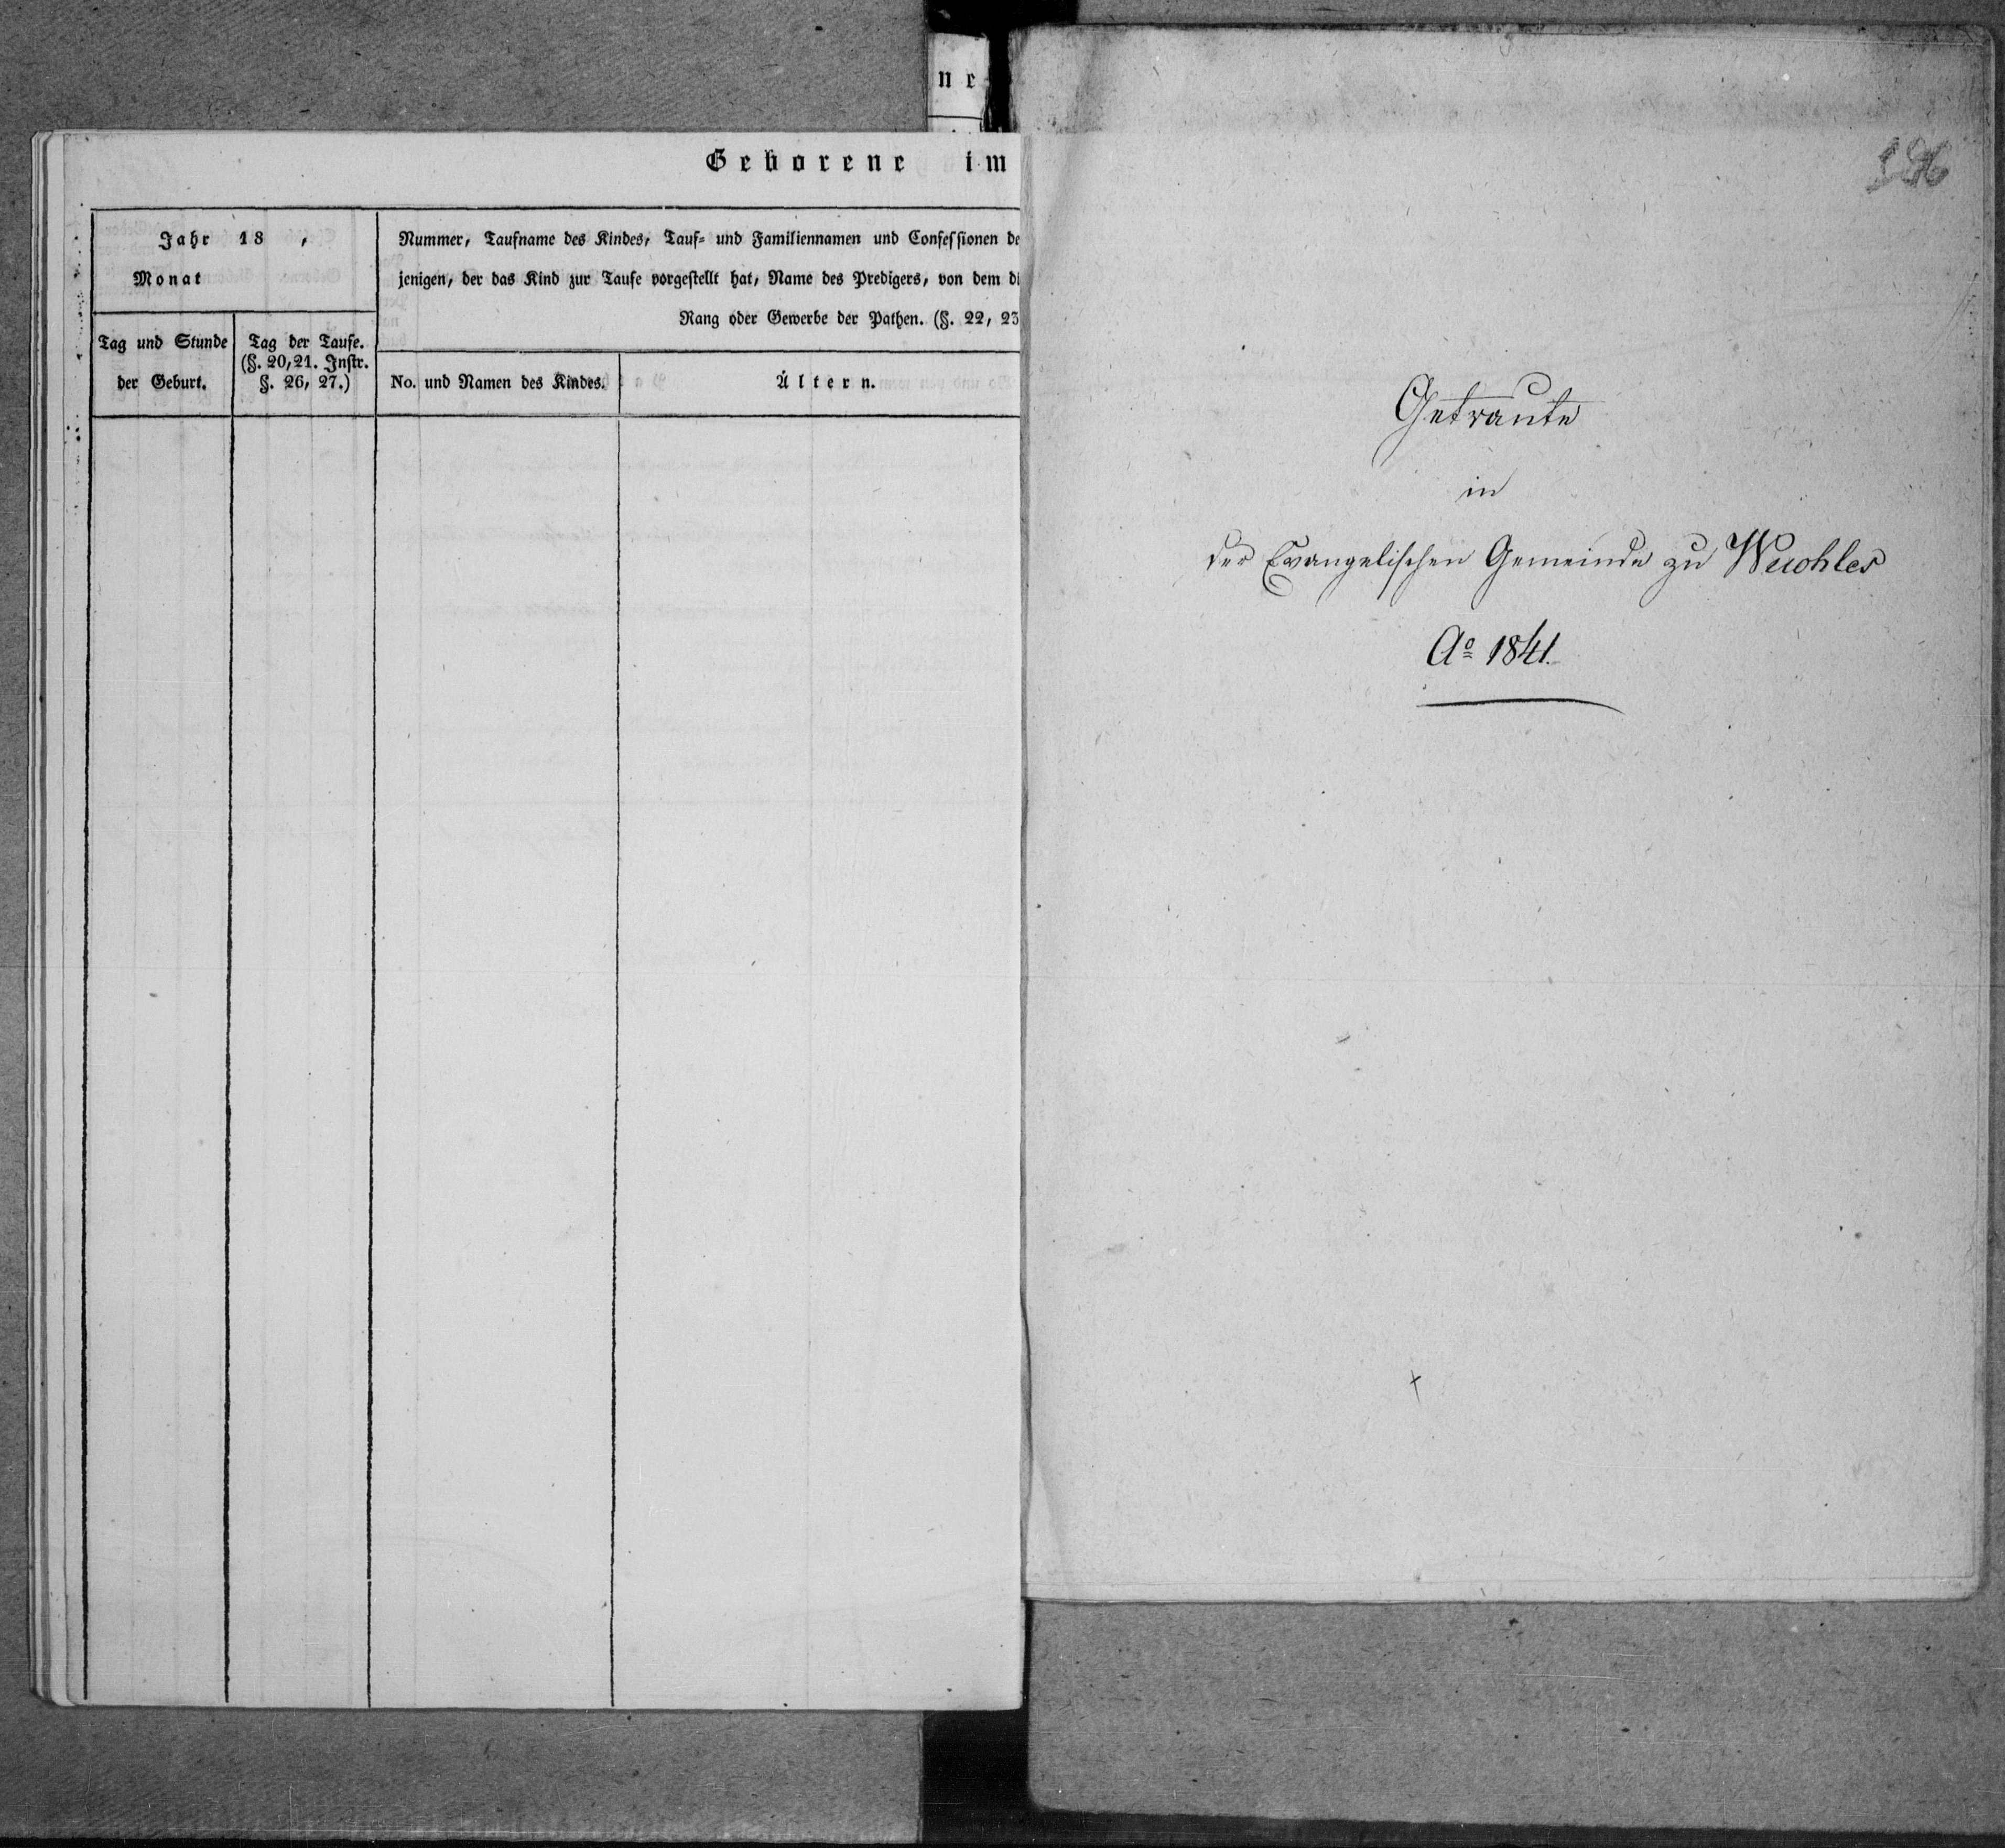 n e
Geborene im
Jahr 18 ,
Monat
Tag und Stunde
der Geburt.
Tag der Taufe.
(§. 20, 21. Instr.
§. 26, 27.)
Nummer, Taufname des Kindes, Tauf- und Familiennamen und Confessionen de
jenigen, der das Kind zur Taufe vorgestellt hat, Name des Predigers, von dem di
Rang oder Gewerbe der Pathen. (§. 22, 23
No. und Namen des Kindes.
Ältern.
Getraute
in
der Evangelischen Gemeinde zu
Ao 1841.